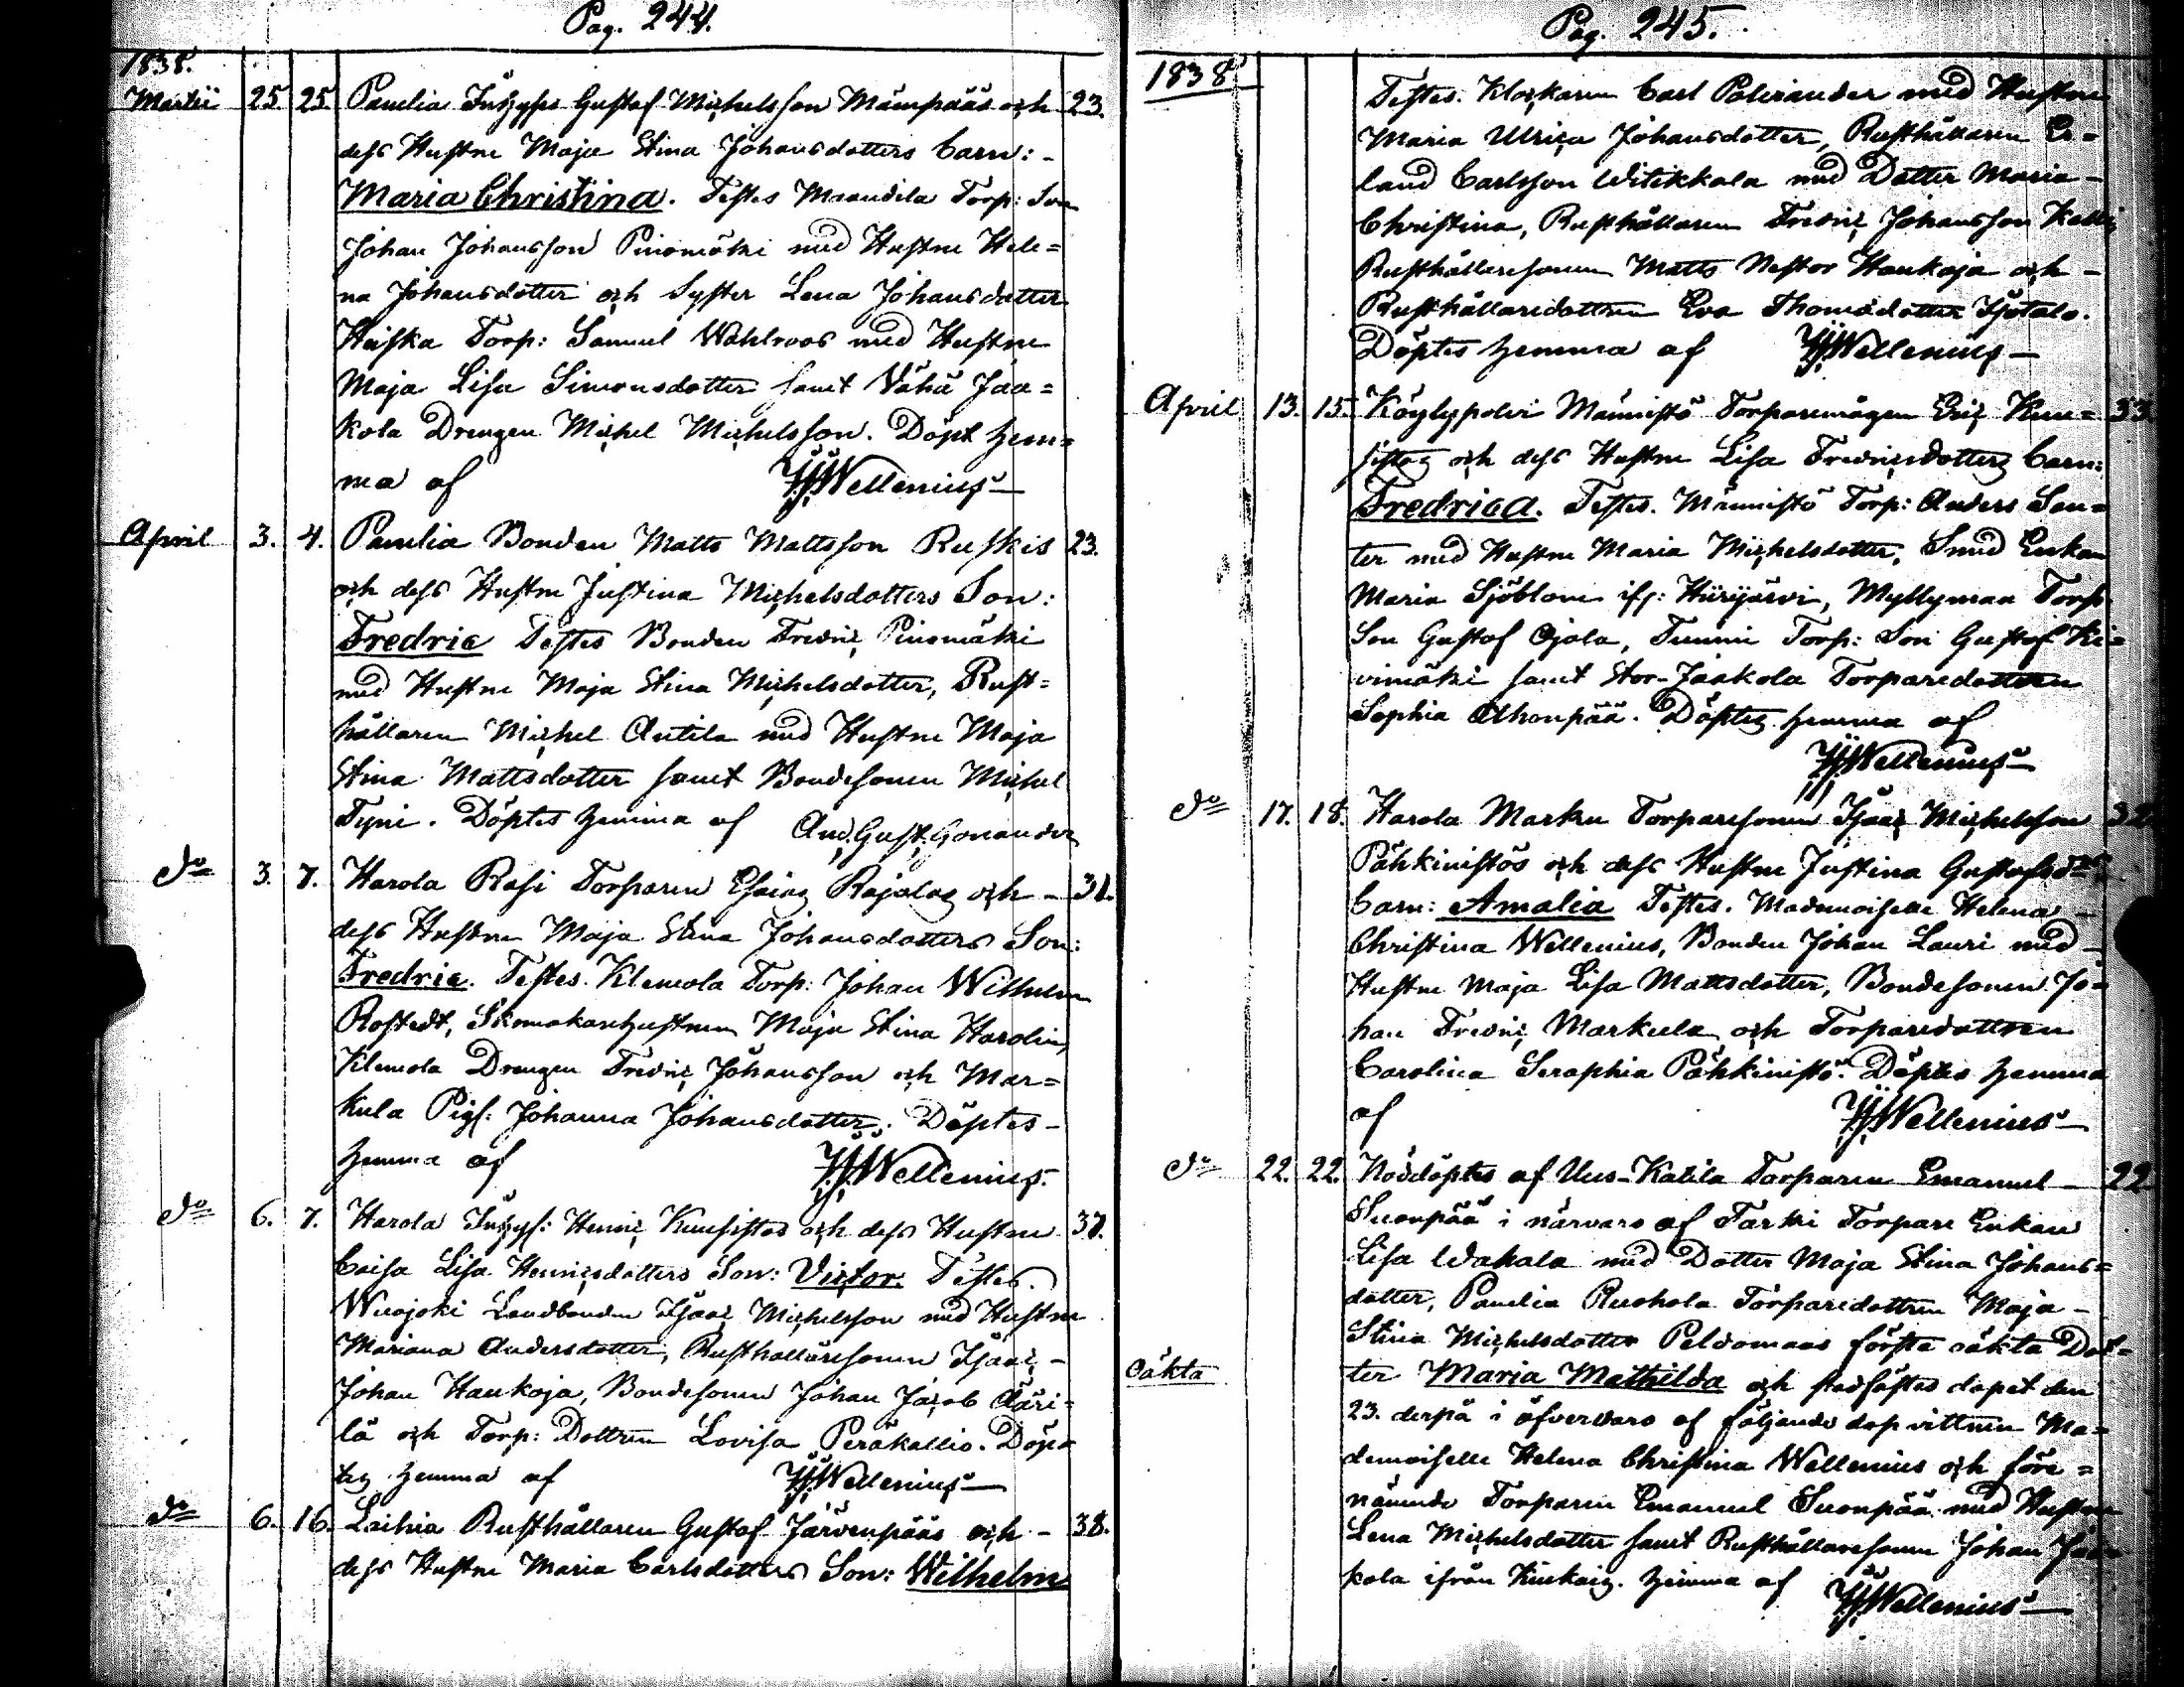 Pag. 244.
1838.
Martii 25 25. Panelia Inhyses Gustaf Michelsson Mämpääs och 23.
dess Hustru Maja Stina Johansdotters Barn: -
Maria Christina. Testes Maandila Torp: Son
Johan Johansson Pinomäki med Hustru Hele=
na Johansdotter och Syster Lena Johansdotter
Heiska Torp: Samuel Wahlroos med Hustru
Maja Lisa Simonsdotter samt Vähä Jaa=
kola Drengen Michel Michelsson. Döpt hem=
ma af Wellenius
April 3. 4. Panelia Bonden Matts Mattsson Ruskis 23.
och dess Hustru Justina Michelsdotters Son:
Fredric Testes Bonden Fredric Pinomäki
med Hustru Maja Stina Michelsdotter, Rust=
hållaren Michel Antila med Hustru Maja
Stina Mattsdotter samt Bondesonen Michel
Tyni. Döptes hemma af And. Gust. Gonander
do 3. 7. Harola Rasi Torparen Esaias Rajalas och - 31.
dess Hustru Maja Stina Johansdotters Son:
Fredric. Testes. Klemola Torp: Johan Wilhelm
Rostedt, Skomakarehustrun Maja Stina Harolin,
Klemola Drengen Fredric Johansson och Mar=
kula Pigs: Johanna Johansdotter. Döptes -
hemma af Wellenius.
do 6. 7. Harola Inhys: Henric Kuusistos och dess Hustru 37.
Caisa Lisa Henricsdotters Son: Victor. Testes.
Wuojoki Landbonden Isaac Michelsson med Hustru
Mariana Andersdotter, Rusthållaresonen Isaac -
Johan Haukoja, Bondesonen Johan Jacob Ääri=
lä och Torp: Dottren Lovisa Peräkallio. Döp=
tes hemma af Wellenius
do 6. 16. Laihia Rusthållaren Gustaf Järvenpääs och - 38.
dess Hustru Maria Carlsdotters Son: Wilhelm
Pag. 245.
1838
Testes. Klockaren Carl Palirander med Hustru
Maria Ulrica Johansdotter, Rusthållaren Er=
land Carlsson Witikkala med Dotter Maria -
Christina, Rusthållaren Fredric Johansson
Rusthållaresonen Matts Nestor Haukoja och -
Rusthållaredottren Eva Thomasdotter Isotalo.
Döptes hemma af Wellenius
April 13. 15. Köylypolvi Männistö Torparemågen Eric Kuu= 33.
sistos och dess Hustru Lisa Fredricsdotters Barn:
Fredrica. Testes. Männistö Torp: Anders San=
ter med Hustru Maria Michelsdotter, Smed Enkan
Maria Sjöblom ifr: Hiirijärvi, Myllymaa Torp.
Son Gustaf Ojala, Tunni Torp: Son Gustaf Ki=
vimäki samt Stor-Jaakola Torparedottren
Sophia Ahonpää. Döptes hemma af
Wellenius
do 17. 18. Harola Marku Torparesonen Isaac Michelsson 32.
Pähkinistös och dess Hustru Justina Gustafsdrs
Barn: Amalia Testes. Mademoiselle Helena -
Christina Wellenius, Bonden Johan Lauri med -
Hustru Maja Lisa Mattsdotter, Bondesonen Jo=
han Fredric Markula och Torparedottren
Carolina Seraphia Pähkinistö. Döptes hemma
af Wellenius
do 22. 22. Nöddöptes af Uus-Katila Torparen Emanuel - 22
Suonpää i närvaro af Tarki Torpare Enkan
Lisa Wakala med Dotter Maja Stina Johans=
dotter, Panelia Ruohola Torparedottren Maja -
Stina Michelsdotter Peldomaas första oäkta Dot=
oäkta ter Maria Mathilda och stadfästes dopet den
23. derpå i öfvervaro af följande dop vittnen Ma=
demoiselle Helena Christina Wellenius och före=
nämnde Torparen Emanuel Suonpää med Hustru
Lena Michelsdotter samt Rusthållaresonen Johan Jaa=
kola ifrån Kiukais. hemma af Wellenius